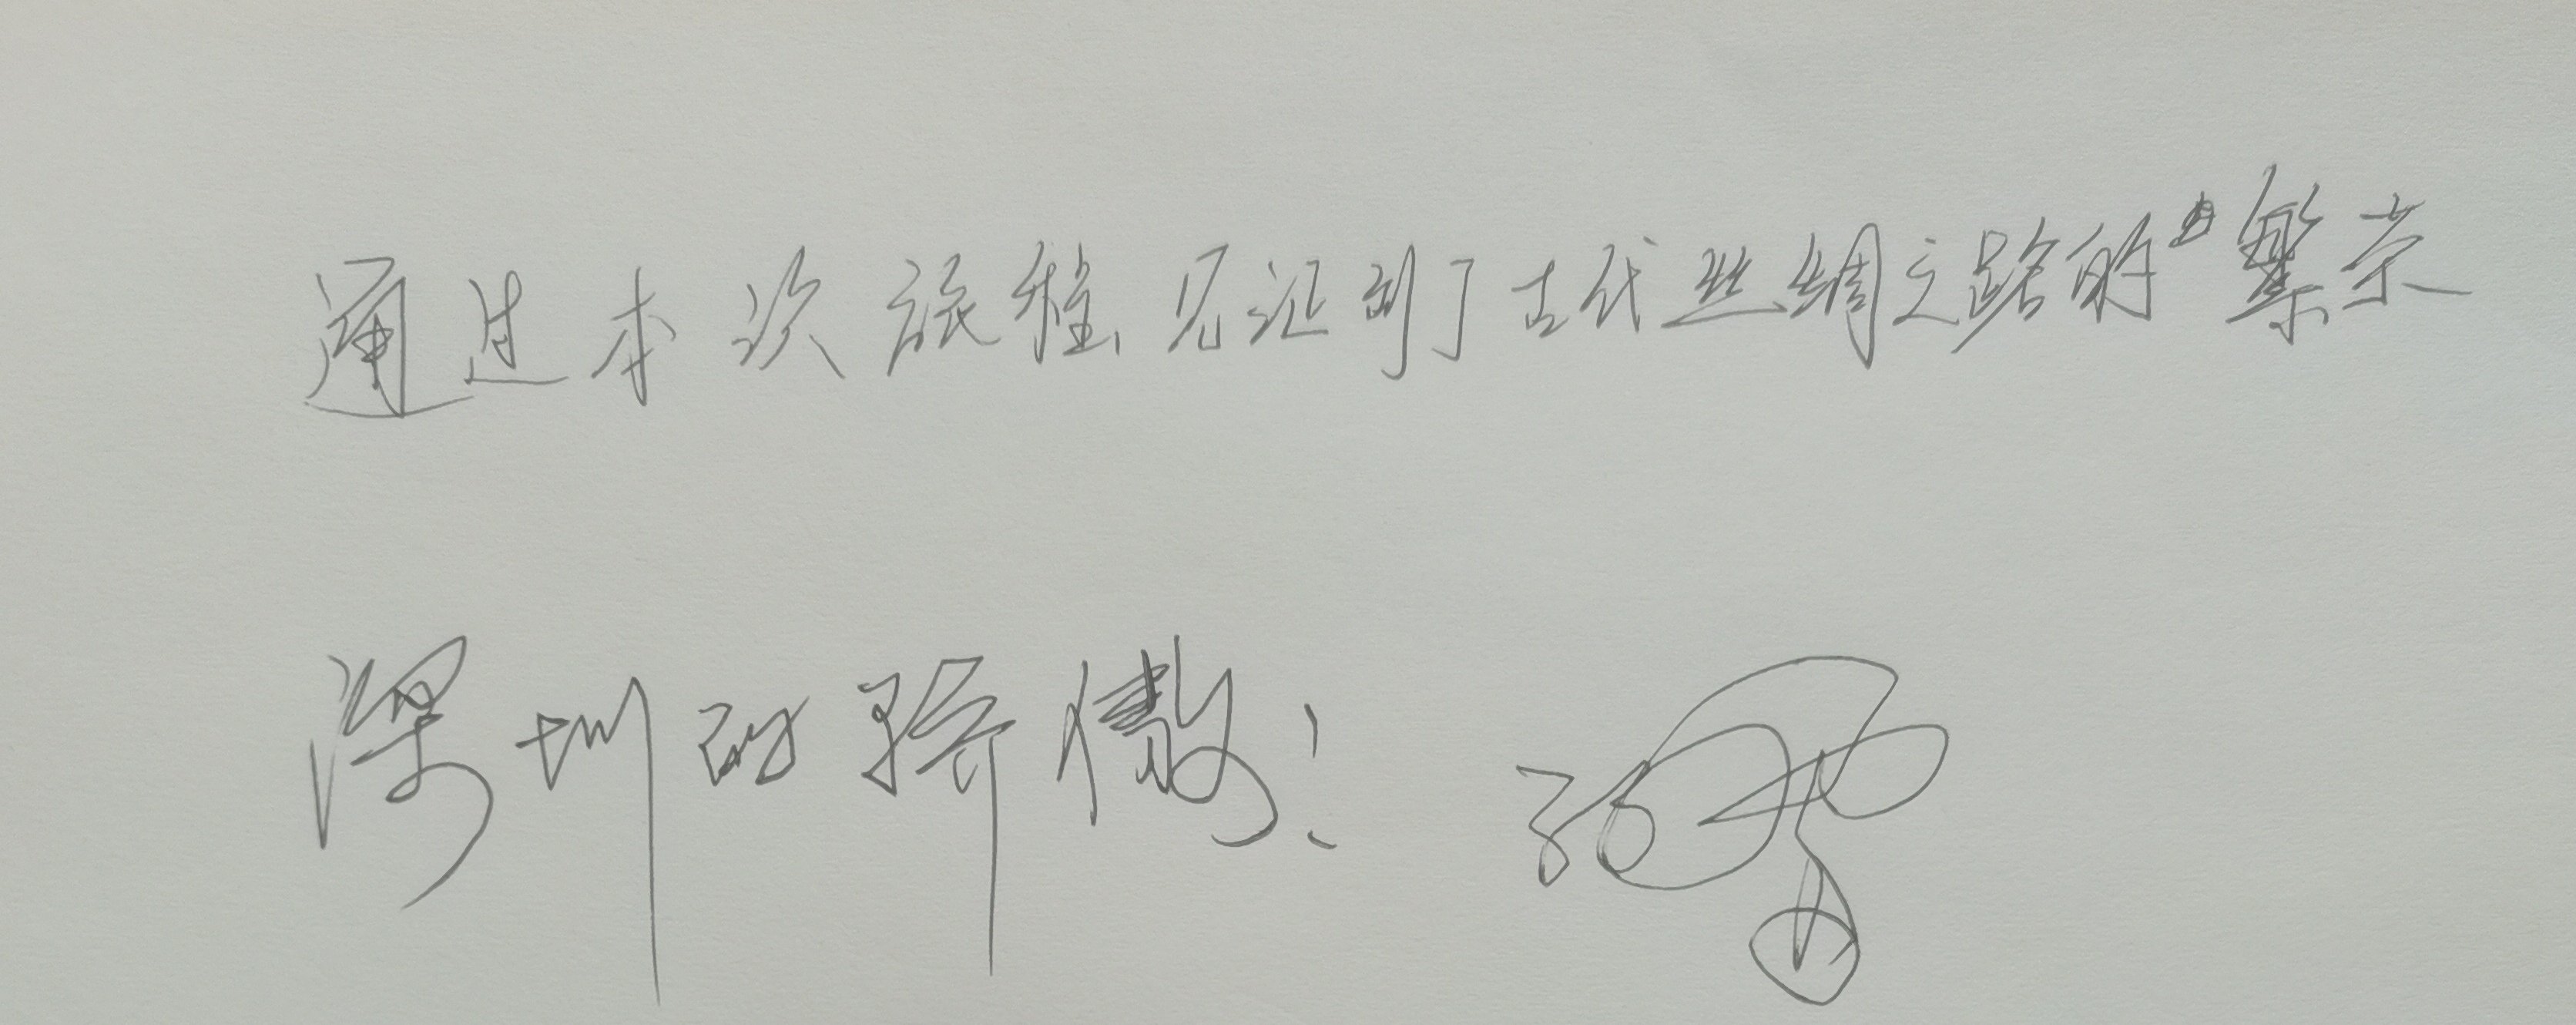 通过本次旅程,见证到了古代丝绸之路的繁荣
深圳的骄傲!